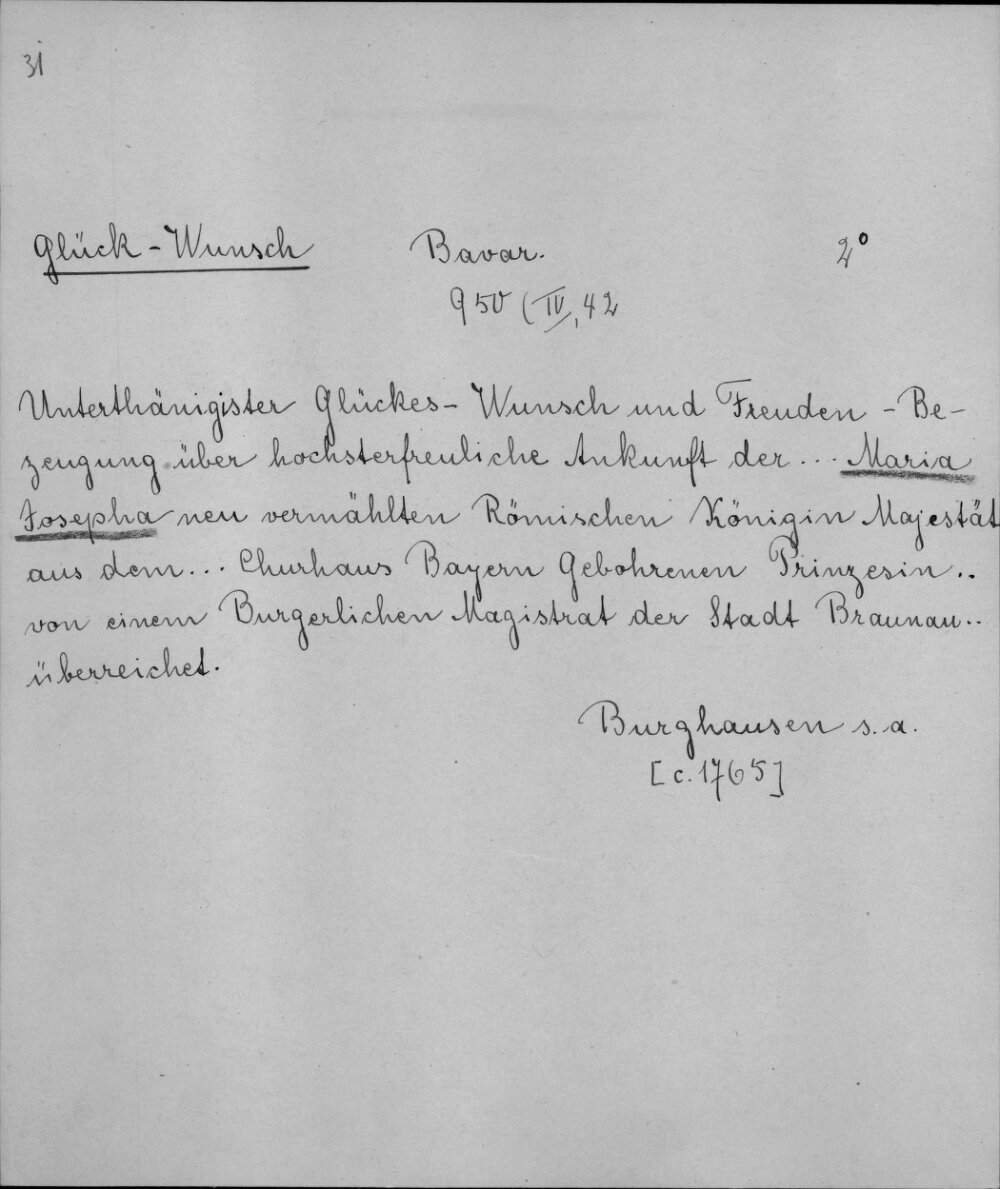 31
Glück-Wunsch Bavar. 2°
950 (IV, 42
Unterthänigister Glückes-Wunsch und Freuden-Be-
zeugung über hochsterfreuliche Ankunft der... Maria
Josepha neu vermählten Römischen Königin Majestät
aus dem... Churhaus Bayern Gebohrenen Prinzesin..
von einem Burgerlichen Magistrat der Stadt Braunau..
überreichet.
Burghausen s. a.
[c. 1765]